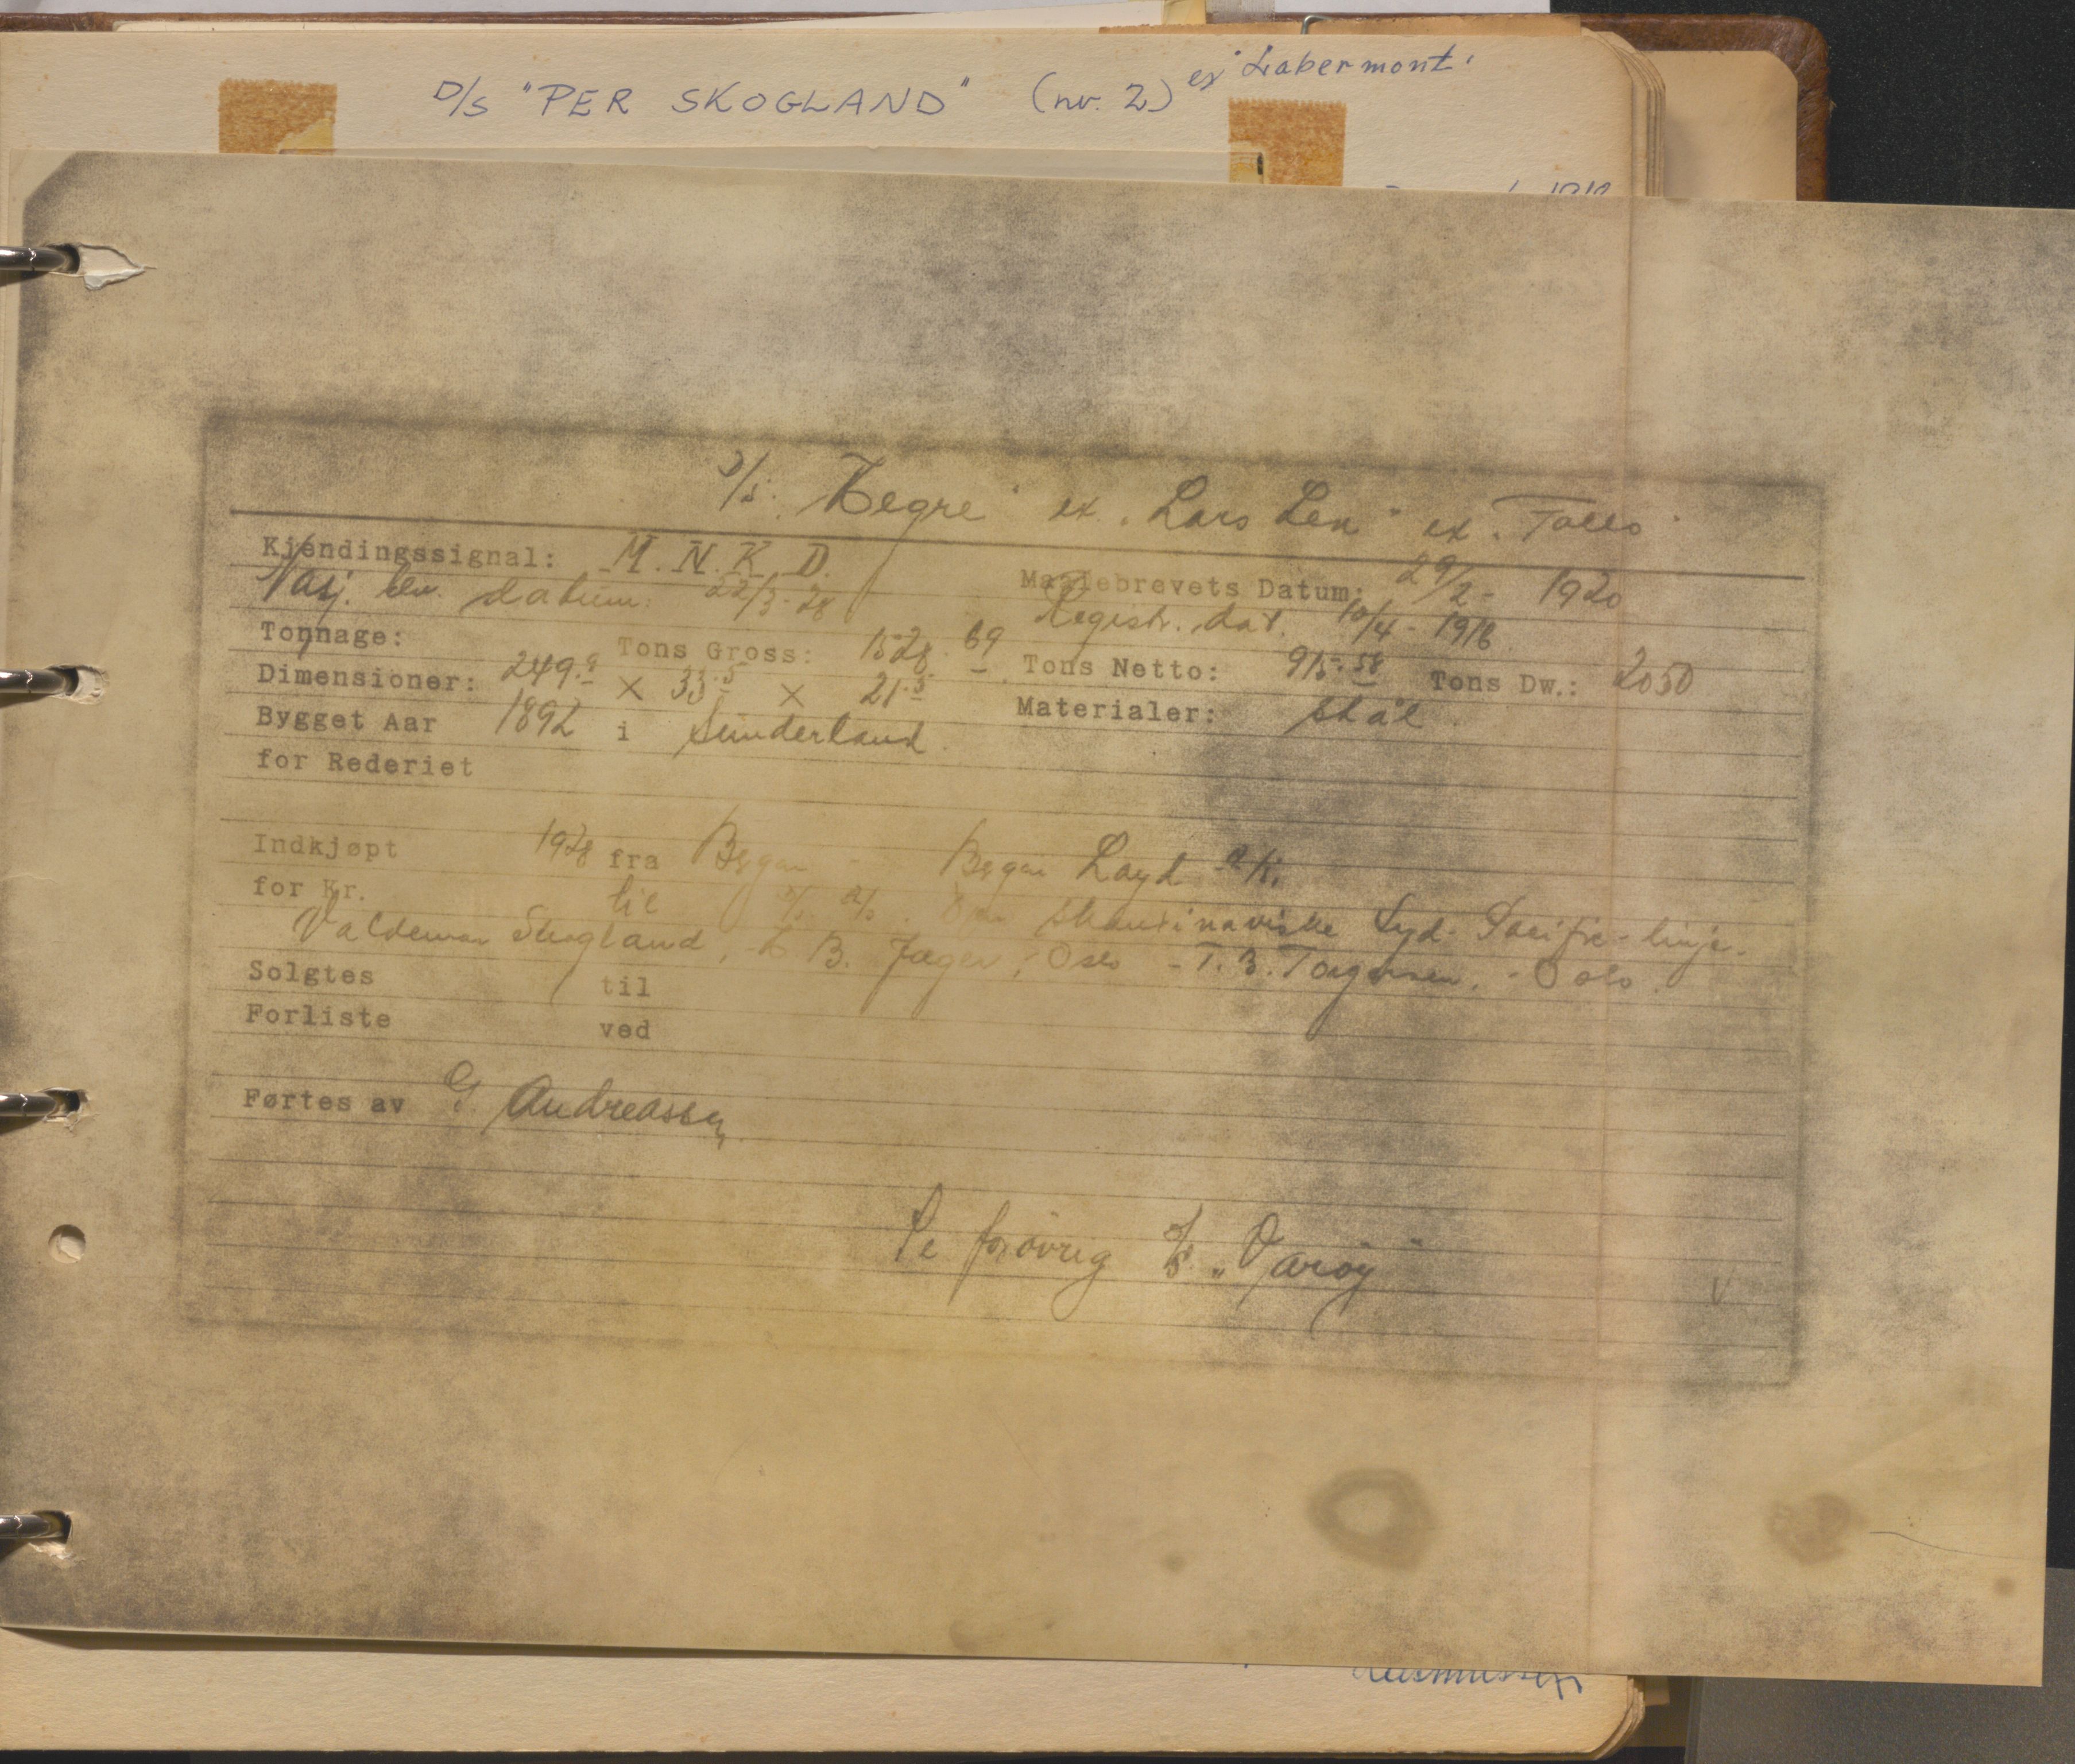 D/S "PER SKOGLAND" (nr. 2) ex "Labermont"
D/S. "Hegre" ex. "Lars Lea" ex. "Follo"
Kjendingssignal: M. N. K. D. Maalebrevets Datum: 29/2 - 1920
Nasj. bev. datum: 22/3-28 Registr. dat. 10/4 - 1918
Tonnage: Tons Gross: 1528.69 Tons Netto: 915.58 Tons Dw.: 2050
Dimensioner: 249.9 × 33.5 × 21.5 Materialer: stål.
Bygget Aar 1892 i Sunderland.
for Rederiet
Indkjøpt 1928 fra Bergen - Bergen Loyd A/S.
for Kr. til D/S A/S. Den Skandinaviske Syd-Pacific-linje.
Valdemar Skogland, - B. Jæger, Oslo - T. B. Torgersen. - Oslo.
Solgtes til
Forliste ved
Førtes av G. Andreassen.
Se forøvrig D/S. "Varøy"
Rasmussen